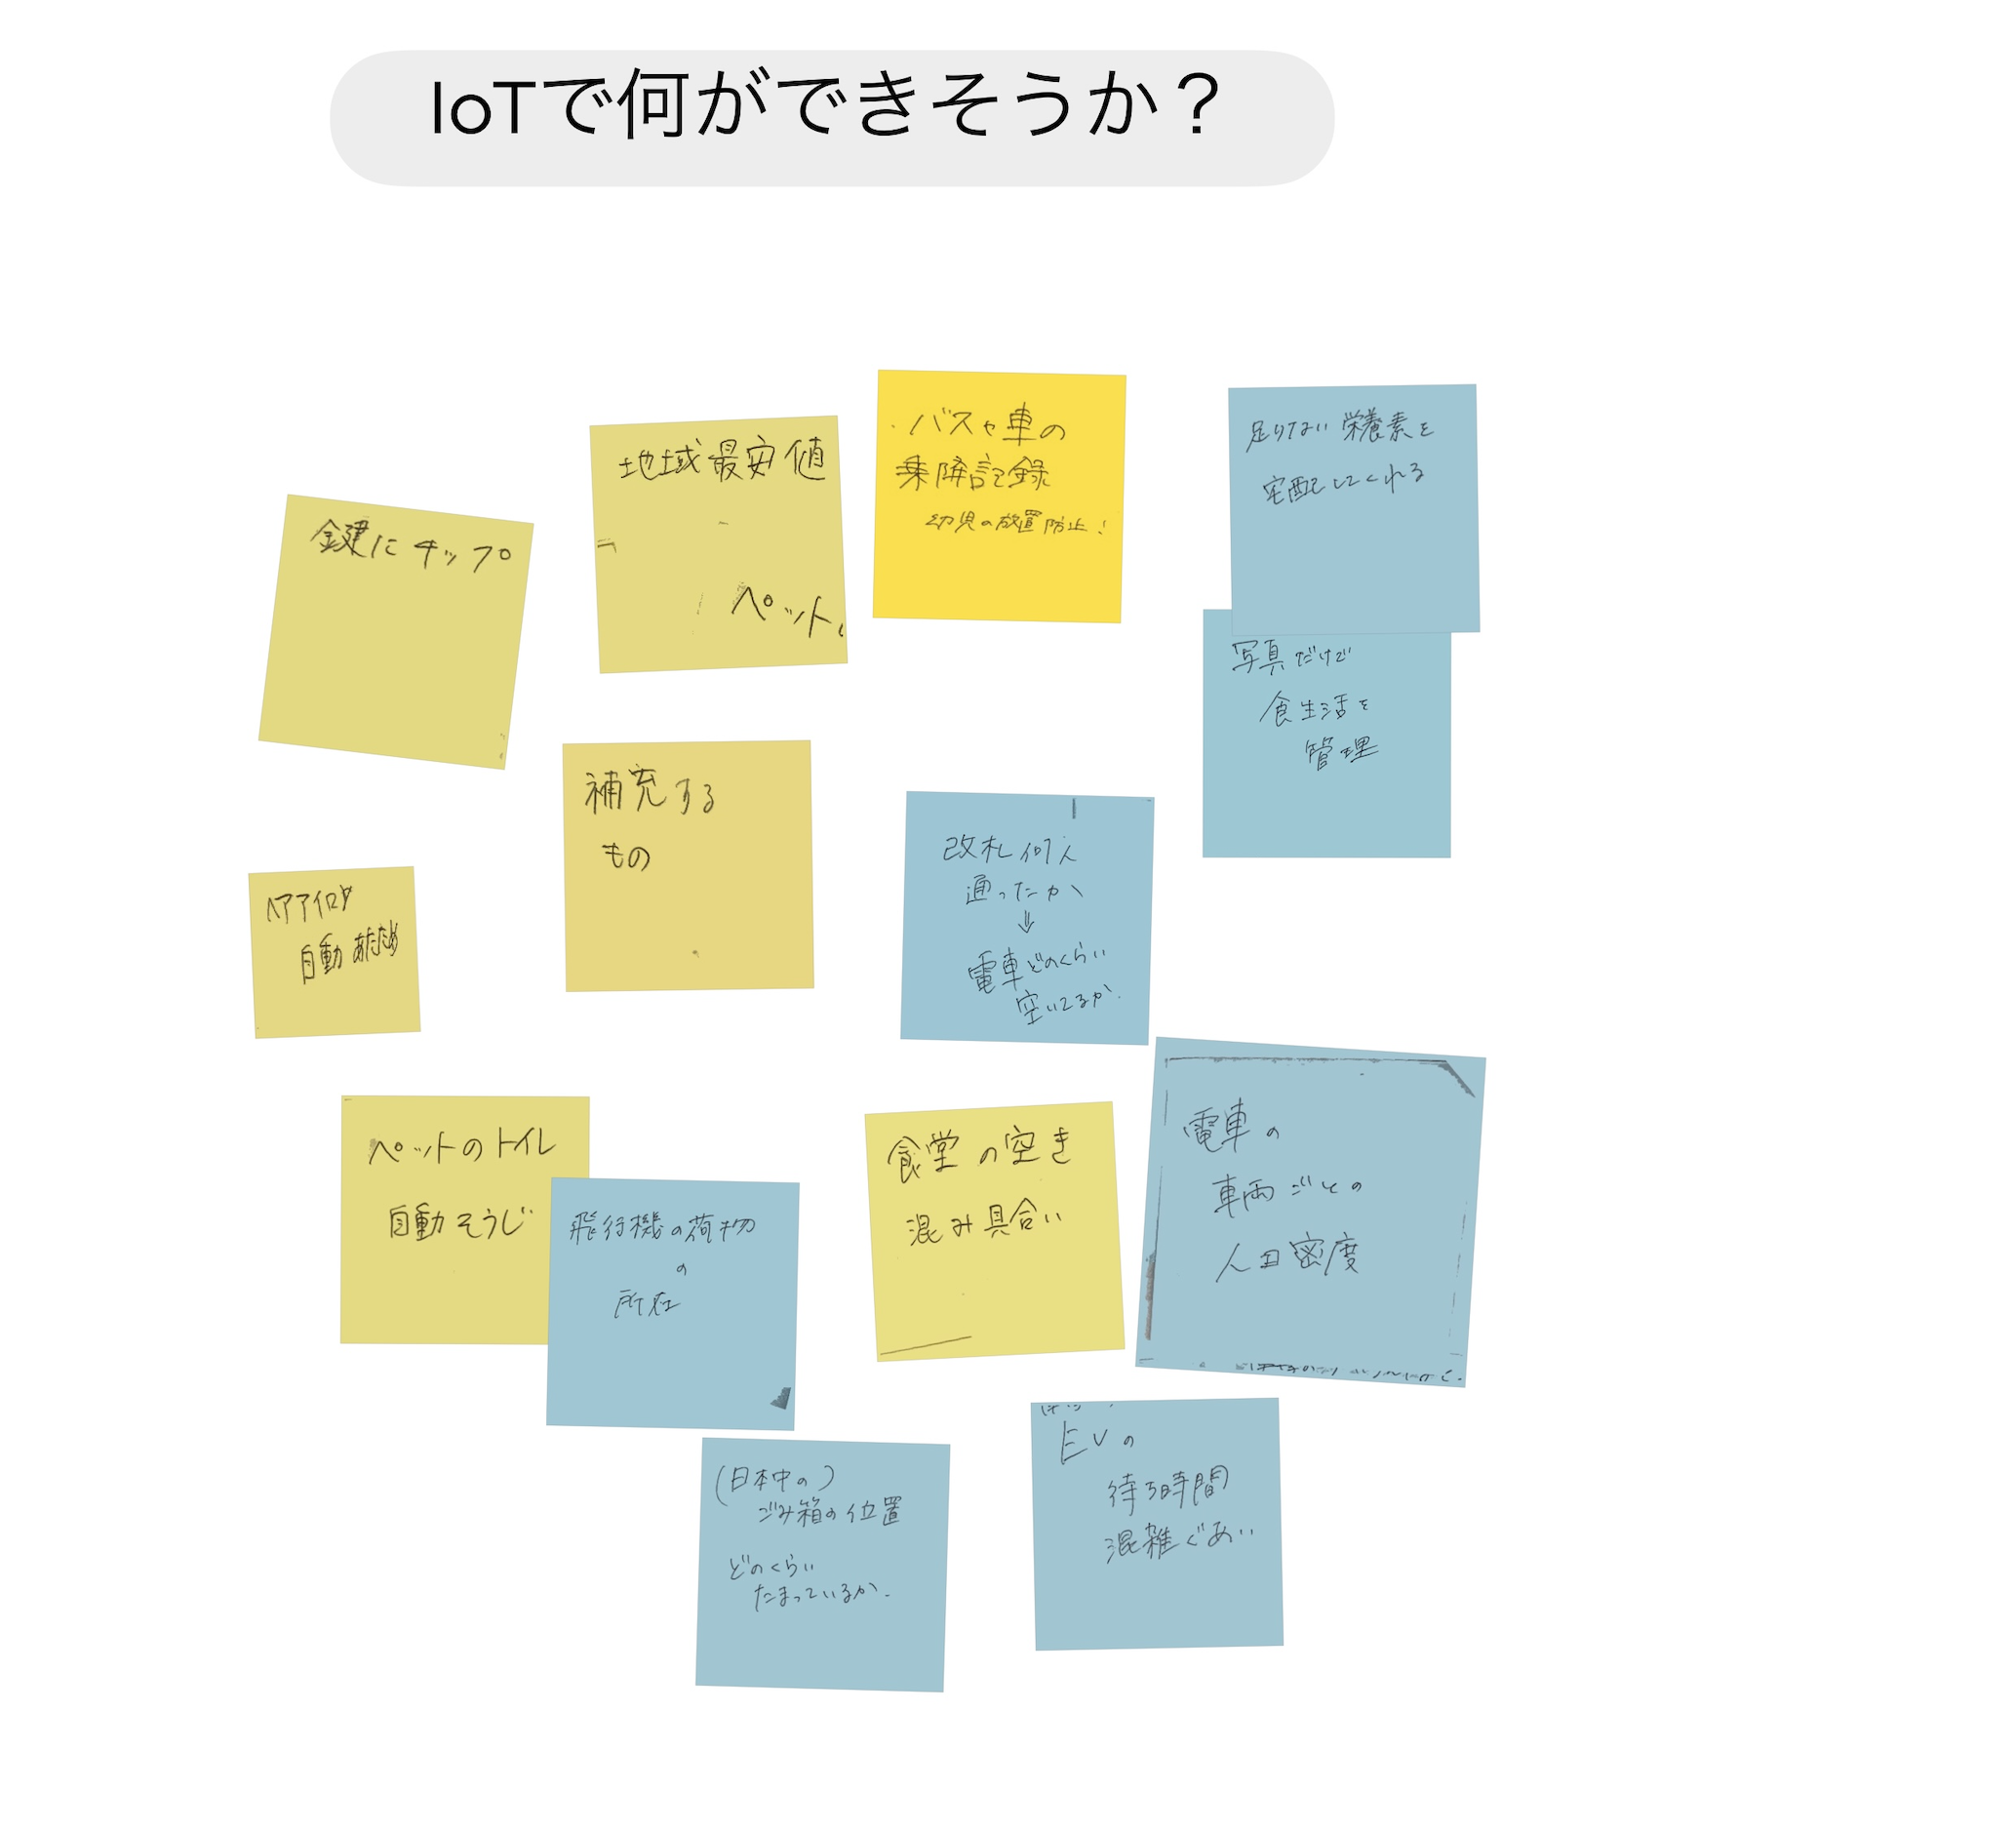 IoTで何ができそうか？
鍵にチップ
地域最安値
ペット
・バスや車の
乗降記録
幼児の放置防止！
足りない栄養素を
宅配してくれる
写真だけで
食生活を
管理
補充する
もの
ヘアアイロン
自動あたため
改札何人
通ったか
⇓
電車どのくらい
空いてるか.
ペットのトイレ
自動そうじ
飛行機の荷物
の
所在
食堂の空き
混み具合い
電車の
車両ごとの
人口密度
(日本中の)
ごみ箱の位置
どのくらい
たまっているか.
EVの
待ち時間
混雑ぐあい